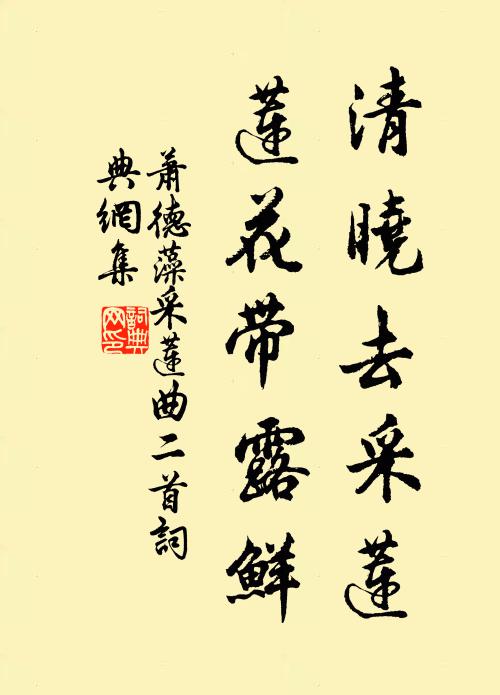 清曉去采蓮
蓮花帶露鮮
蕭德藻采蓮曲二首詞
典網集
詞典网印